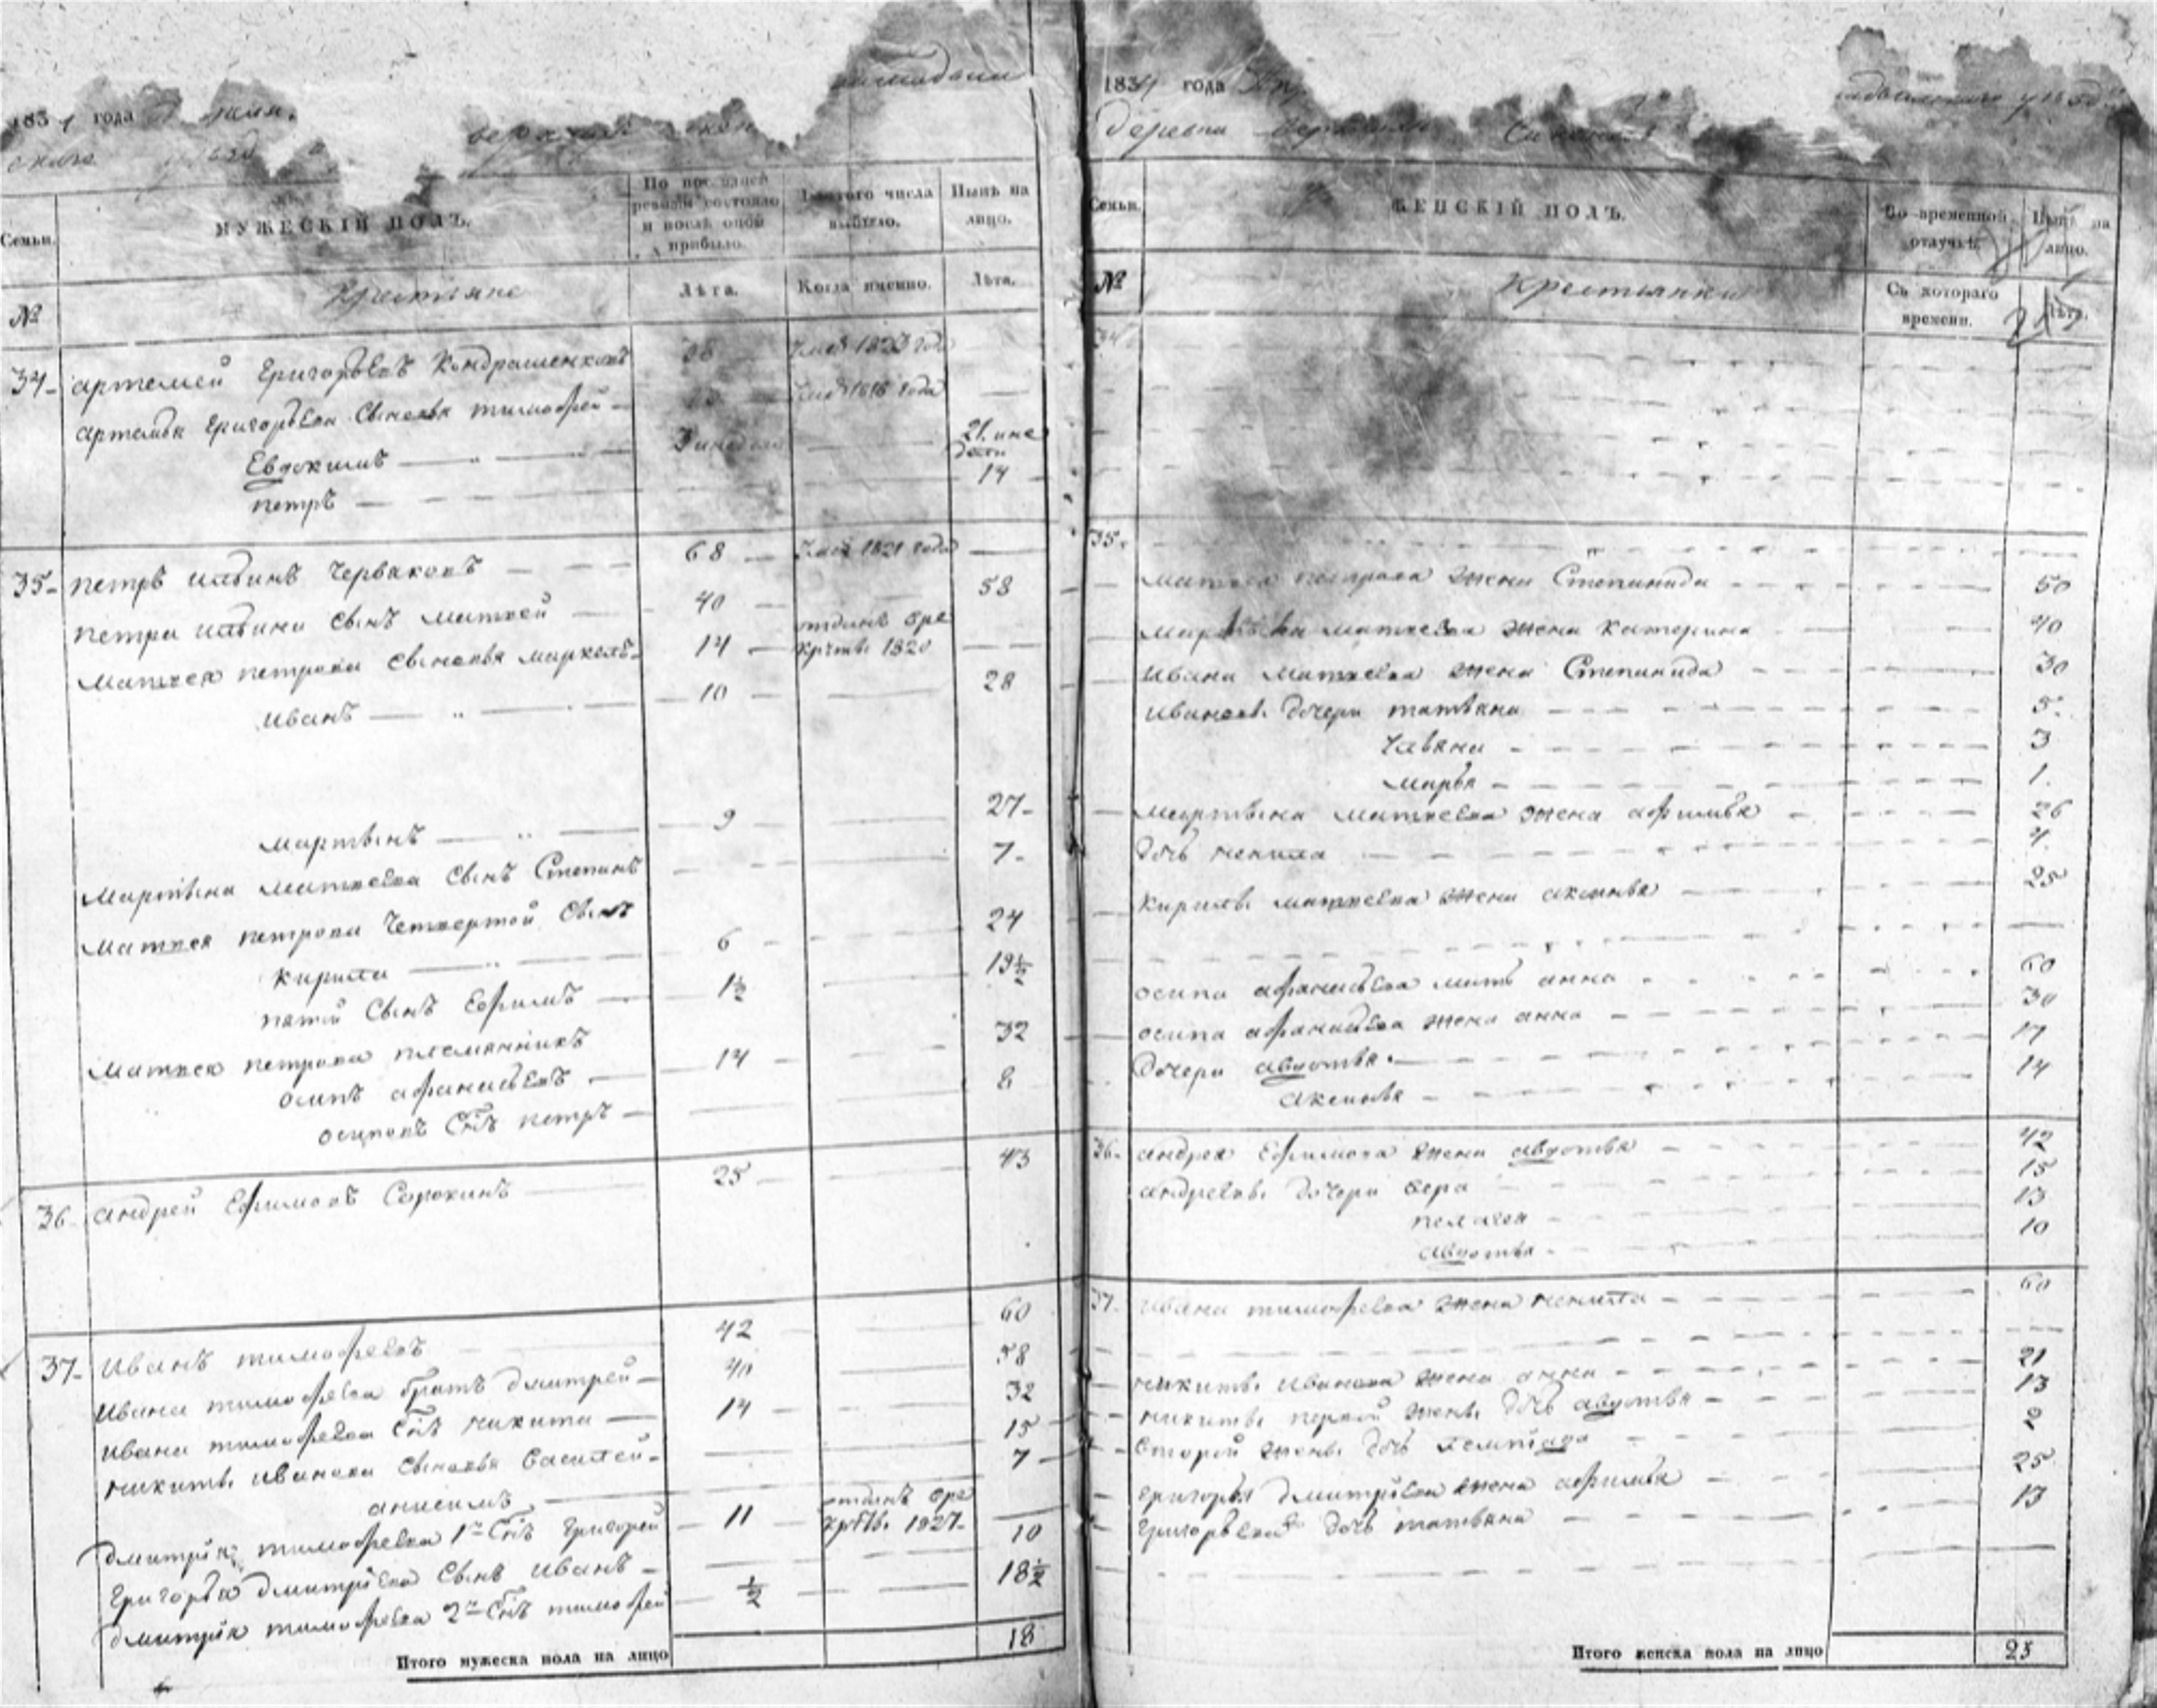 1834 года
МУЖЕСКІЙ ПОЛЪ.
Семьи.
По последней ревизіи состояло и послѣ оной прибыло.
Изъ того числа выбыло.
Нынѣ на лицо.
№
Крестьяне
Лѣта.
Когда именно.
Лѣта.
34 Артемей Григорьевъ Кондрашенковъ 38 1823 года
Артемья Григорьева сыновья Тимофей 1818 года —
Евдокимъ — 3 недели — 21. и не дели
Петръ — 14
35 Петръ Ильинъ Черваковъ 68 1821 года —
Петра Ильина сынъ Матвей 40 — 58
Матвея Петрова сыновья Маркелъ 14 отданъ в ре круты 1820 —
Иванъ — 10 — 28
Мартынъ — 9 — 27
Мартына Матвеева сынъ Степанъ — 7
Матвея Петрова четвертой сынъ
Кирила — 6 — 24
пятой сынъ Ефимъ — 1½ — 19½
Матвея Петрова племянникъ
Осипъ Афанасьевъ — 14 — 32
Осиповъ сынъ Петръ — 8
36 Андрей Ефимовъ Сорокинъ 25 — 43
37 Иванъ Тимофеевъ 42 — 60
Ивана Тимофеева братъ Дмитрей 40 — 58
Ивана Тимофеева сынъ Никита — 14 — 32
Никиты Иванова сыновья Василей — 15
Анисимъ — 7
Дмитрія Тимофеева 1й сынъ Григорей 11 отданъ в ре круты 1827 —
Григорья Дмитріева сынъ Иванъ — 10
Дмитрія Тимофеева 2й сынъ Тимофей ½ — 18½
Итого мужеска пола на лицо 18
1834 года
деревни
ЖЕНСКІЙ ПОЛЪ.
Семьи.
Во временной отлучкѣ.
Нынѣ на лицо.
№
Крестьянки
Съ котораго времени.
Лѣта.
34
35.
Матвея Петрова жена Степанида 50
Маркела Матвеева жена Катерина 40
Ивана Матвеева жена Степанида 30
Ивановы дочери Татьяна 5
Ульяна 3
Марья 1.
Мартына Матвеева жена Афимья 26
дочь Ненила 4
Кирилы Матвеева жена Аксинья 25
Осипа Афанасьева мать Анна 60
Осипа Афанасьева жена Анна 30
Дочери Авдотья 17
Аксинья 14
36. Андрея Ефимова жена Авдотья 42
Андреевы дочери Вера 15
Пелагея 13
Авдотья 10
37. Ивана Тимофеева жена Ненила 60
Никиты Иванова жена Анна 21
Никиты первой жены дочь Авдотья 13
Второй жены дочь 2
Григорья Дмитріева жена Афимья 25
Григорьева дочь Татьяна 13
Итого женска пола на лицо 23